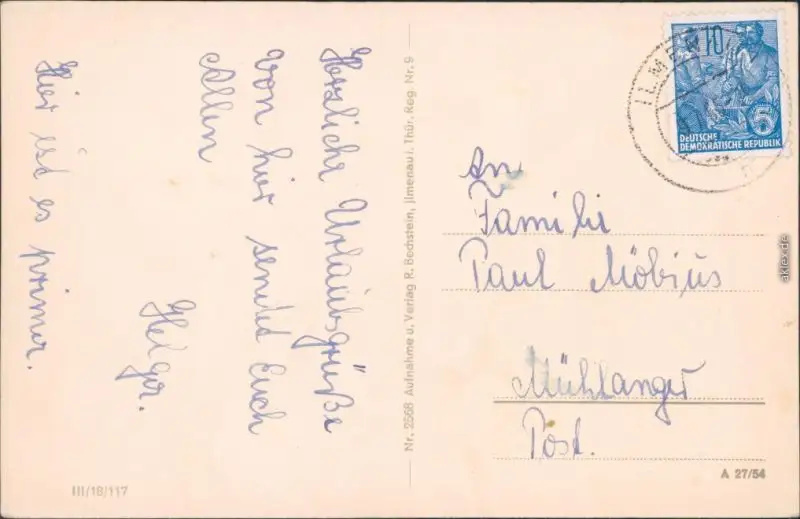 Herzliche Urlaubsgrüße
von hier sendet Euch
Allen
Helga.
Hier ist es prima.
Nr. 2568 Aufnahme u. Verlag R. Bechstein, Jlmenau i. Thür. Reg Nr. 9
III/18/117
ILMEN
10
DEUTSCHE
DEMOKRATISCHE REPUBLIK
An
Familie
Paul Möbius
Mühlanger
Post.
A 27/54
akpool.de